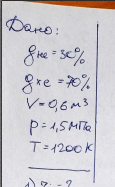 Дано:
gHe = 30%
gXe = 70%
V = 0,6 м³
P = 1,5 МПа
T = 1200 K